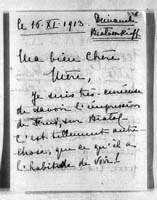 le 16. XI. 1913.
Ma bien Chère
Mère,
Je suis très curieuse
de savoir l'impression
de
c'est tellement autre
chose, que ce qu'il a
l'habitude de voir!